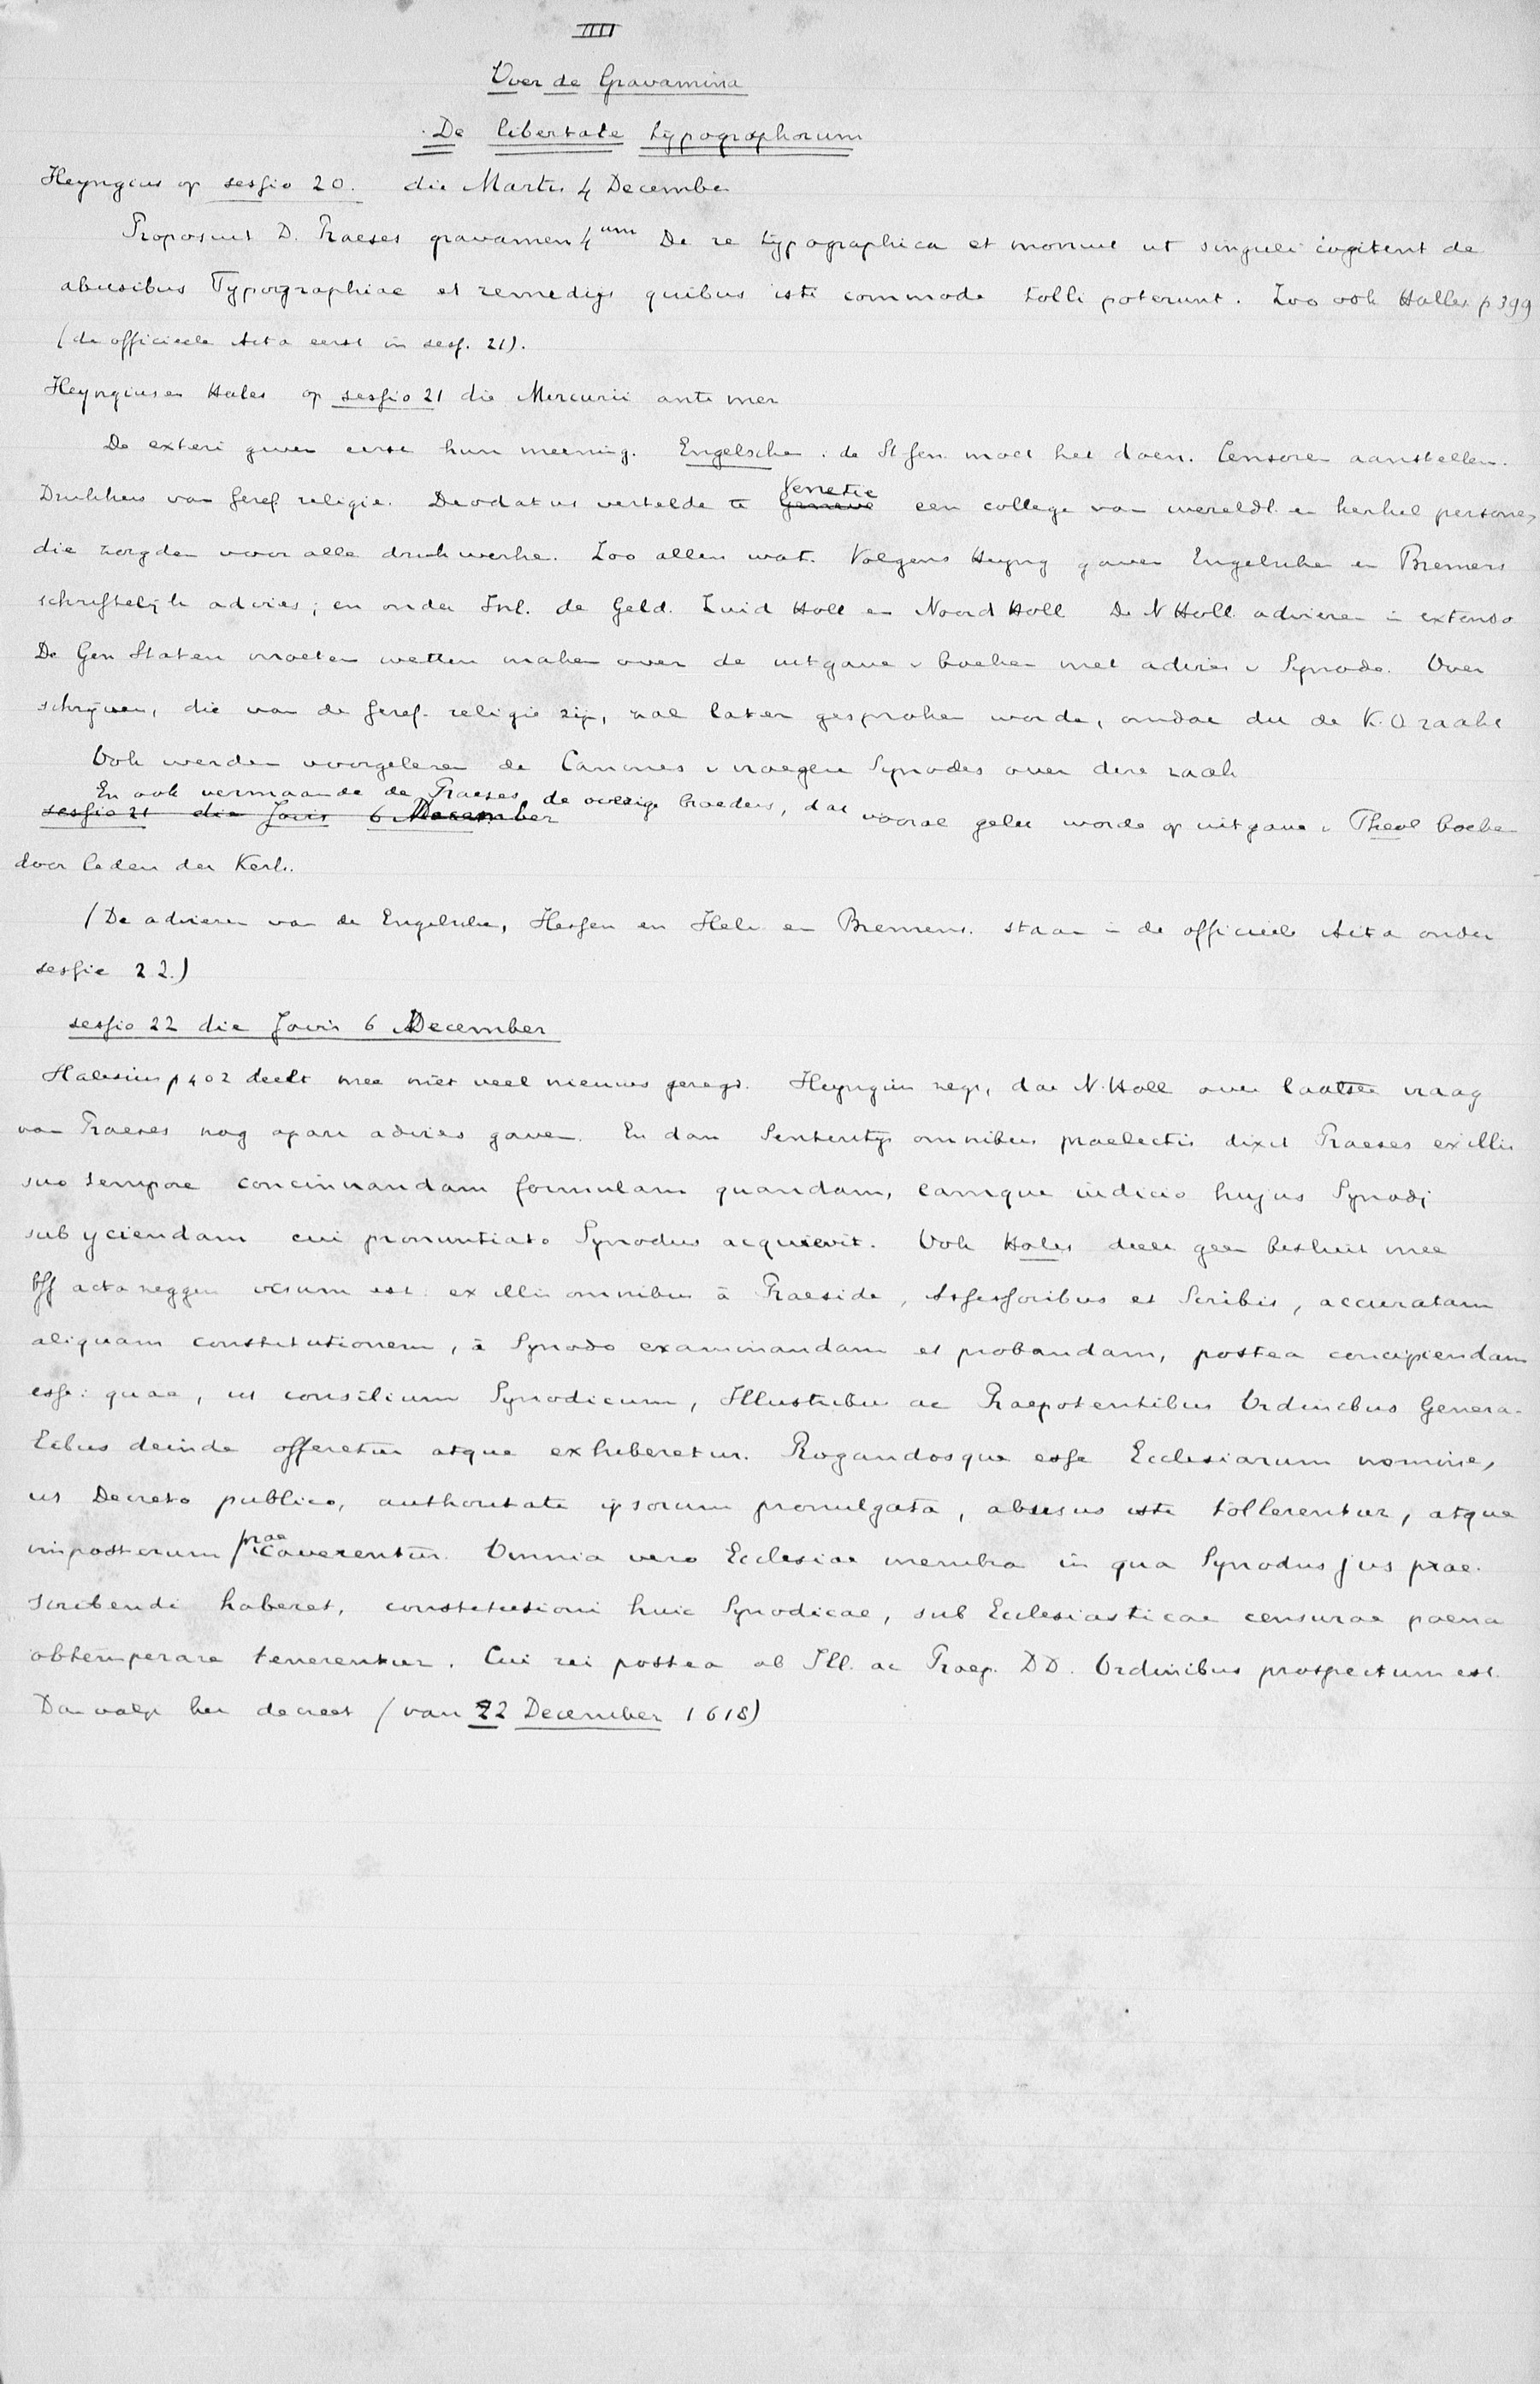 IIII
Over de Gravamina
De libertate typographorum
Heyngius op sessio 20. die Martis 4 December
Proposuit D. Praeses gravamen 4um De re typographica et monuit ut singuli cogitent de
abusibus Typographiae et remedijs quibus isti commode tolli poterunt. Zoo ook Halles p 399
(de officieele Acta eerst in sess. 21).
Heyngius en Hales op sessio 21 die Mercurii ante mer
De exteri gaven eerst hun meening. Engelschen: de St Gen. moet het doen. Censoren aanstellen.
Drukkers van Geref. religie. Deodatus vertelde te Geneve Venetie een college van wereldl. en kerkel personen,
die zorgden voor alle drukwerke. Zoo allen wat. Volgens Heyng gaven Engelschen en Bremers
schriftelijk advies; en onder Inl. de Geld. Zuid Holl en Noord Holl De N Holl. adviseren in extenso
De Gen Staten moeten wetten maken over de uitgave v boeken met advies v Synode. Over
schrijvers, die van de Geref. religie zijn, zal later gesproken worden, omdat dit de K.O raakt
Ook werden voorgelezen de Canones v vroegere Synodes over deze zaak
En ook vermaande de Praeses de overige broeders, dat vooral gelet worde op uitgave v Theol boeken
sessio 21 die Jovis 6 December
door leden der Kerk.
(De adviezen van de Engelschen, Hessen en Helv. en Bremens. staan in de officieele Acta onder
sessie 22.)
sessio 22 die Jovis 6 December
Halesius p 402 deelt mee niet veel nieuws gezegd. Heyngius zegt, dat N. Holl over laatste vraag
van Praeses nog apart advies gaven. En dan Sententijs omnibus praelectis dixit Praeses ex illis
suo tempore concinnandam formulam quandam, eamque iudicio hujus Synodi
subyciendam cui pronuntiato Synodus acquievit. Ook Hales deelt geen besluit mee
Off acta zeggen visum est ex illis omnibus à Praeside, Assessoribus et Scribis, accuratam
aliquam constitutionem, à Synodo examinandam et probandam, postea concipiendam
esse: quae, ut consilium Synodicum, Illustribus ac Praepotentibus Ordinibus Genera-
libus deinde offeretur atque exhiberetur. Rogandosque esse Ecclesiarum nomine,
ut Decreto publico, authoritate ipsorum promulgata, abusus iste tollerentur, atque
imposterum praecaverentur. Omnia vero Ecclesiae membra in qua Synodus jus prae-
scribendi haberet, constitutioni huic Synodicae, sub Ecclesiasticae censurae poena
obtemperare tenerentur. Cui rei postea ab Ill. ac Praep. DD. Ordinibus prospectum est.
Dan volgt het decreet (van 22 December 1618)